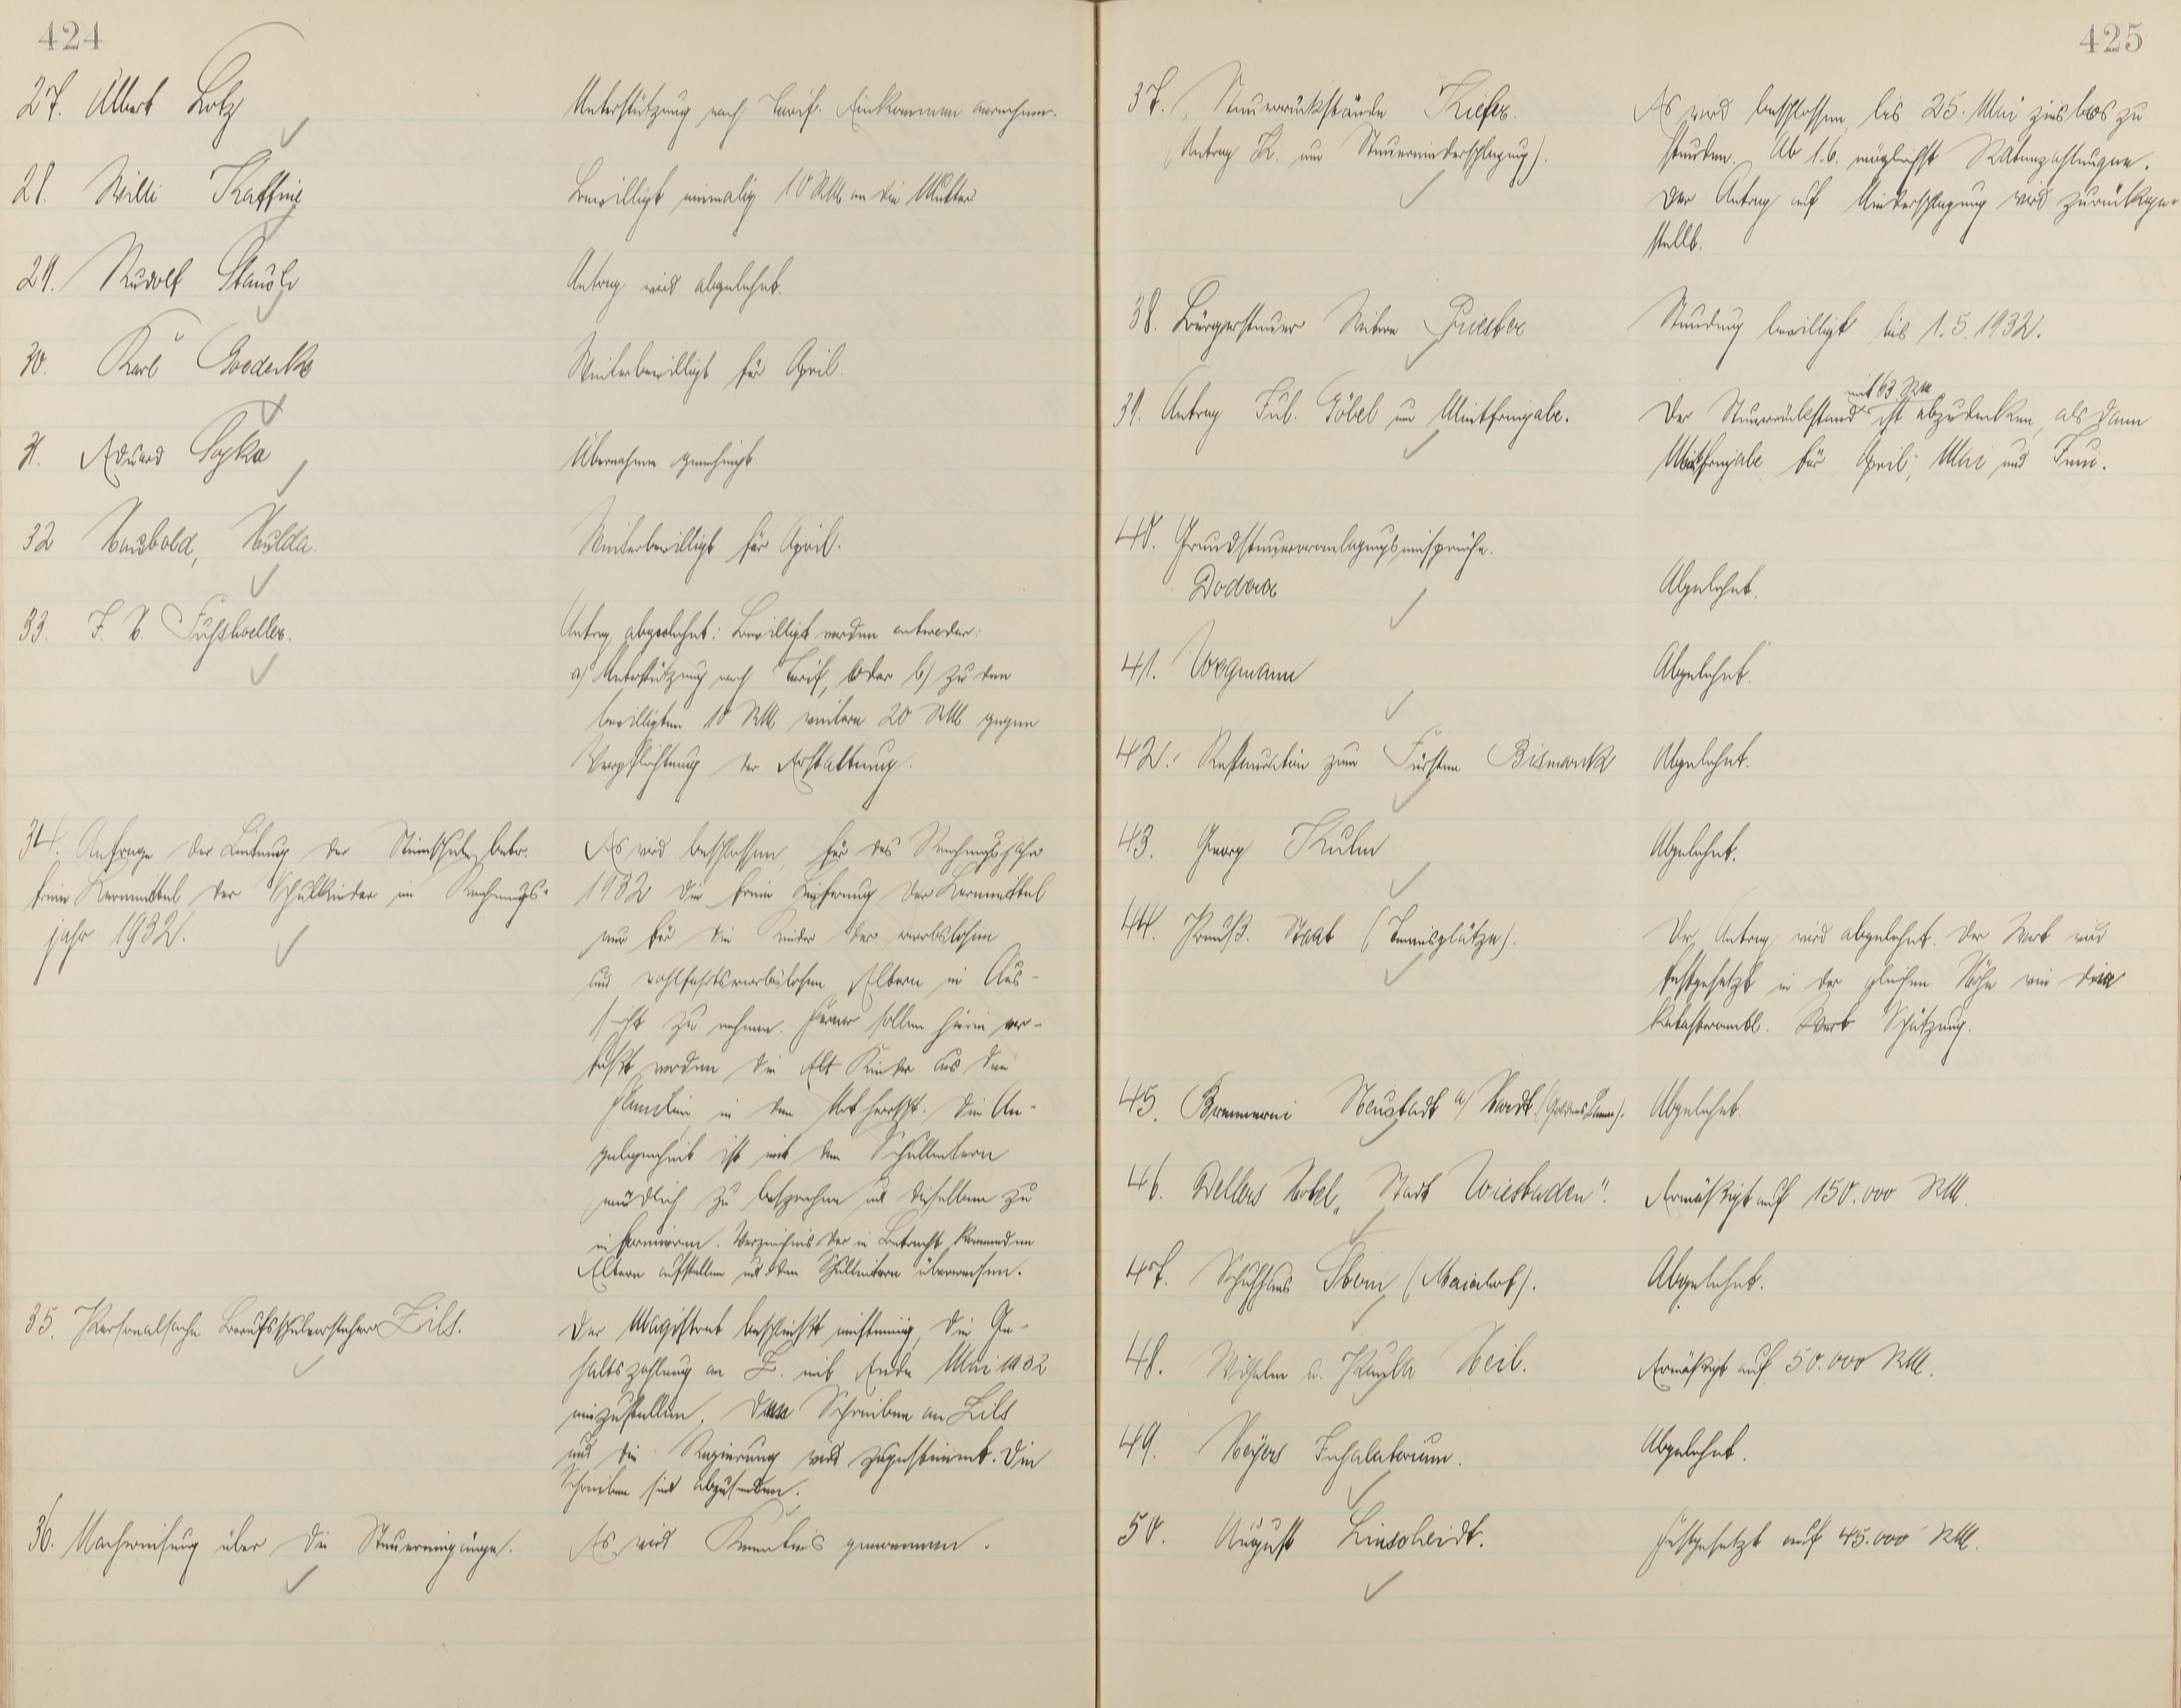 424
27. Albert Lotz
Unterstützung nach Tarif. Einkommen anrechnen.
28. Willi Kaffine
Bewilligt einmalig 10 RM an die Mutter
29. Rudolf
Antrag wird abgelehnt.
30. Karl Goedecke
Weiterbewilligt für April.
31. Eduard Pyka
Übernahme genehmigt.
32 Haubold, Hulda.
Weiterbewilligt für April.
33. F. W. Füsshoeller.
Antrag abgelehnt: Bewilligt werden entweder:
a) Unterstützung nach Tarif, oder b) zu den
bewilligten 10 RM weitere 20 RM gegen
Verpflichtung der Erstattung.
34. Anfrage der Leitung der Steinschule betr.
freie Lernmittel der Schulkinder im Rechnungs-
jahr 1932.
Es wird beschlossen, für das Rechnungsjahr
1932 die freie Lieferung der Lernmittel
nur für die Kinder der erwerbslosen
und wohlfahrtserwerbslosen Eltern in Aus-
sicht zu nehmen. Ferner sollen hierin er-
faßt werden die Kinder aus den
Familien, in den Not herrscht. Die An-
gelegenheit ist mit den Schulleitern
mündlich zu besprechen und dieselben zu
informieren. Verzeichnis der in Betracht kommenden
Eltern aufstellen und den Schulleitern überweisen.
35. Personalsache Berufsschulvorsteher Zils.
Der Magistrat beschließt einstimmig, die Ge-
haltszahlung an Z. mit Ende Mai 1932
einzustellen. Schreiben an Zils
und die Regierung wird zugestimmt. Die
Schreiben sind abzusenden.
36. Nachweisung über die Steuereingänge.
Es wird Kenntnis genommen.
425
37. Steuerrückstände Kiefer.
(Antrag K. um Steuerniederschlagung).
Es wird beschlossen, bis 25. Mai zinslos zu
stunden. Ab 1.6. möglichst Ratenzahlungen.
Der Antrag auf Niederschlagung wird zurückge-
stellt.
38. Bürgersteuer Witwe Priester
Stundung bewilligt bis 1.5.1932.
39. Antrag Jul. Göbel um Mietfreigabe.
mit 63 RM
Der Steuerrückstand ist abzudecken, alsdann
Mietfreigabe für April, Mai und Juni.
40. Grundsteuerveranlagungseinsprüche.
Dodoxx
Abgelehnt.
41. Wegmann
Abgelehnt.
42. Restauration zum Fürsten Bismarck
Abgelehnt.
43. Georg Kuhn
Abgelehnt.
44. Preuß. Staat (Tennisplätze).
Der Antrag wird abgelehnt. Der Wert wird
festgesetzt in der gleichen Höhe wie die
katasteramtl. Wert Schätzung.
45. Brennerei Neustadt a/ Hardt (Goldenes Lamm).
Abgelehnt.
46. Dellers Hotel „Stadt Wiesbaden".
Ermäßigt auf 150.000 RM.
47. Schuhhaus Stern
Abgelehnt.
48. Wilhelm u. Paula Heil.
Ermäßigt auf 50.000 RM.
49. Heyers Inhalatorium.
Abgelehnt.
50. August Linscheidt.
Festgesetzt auf 45.000 RM.